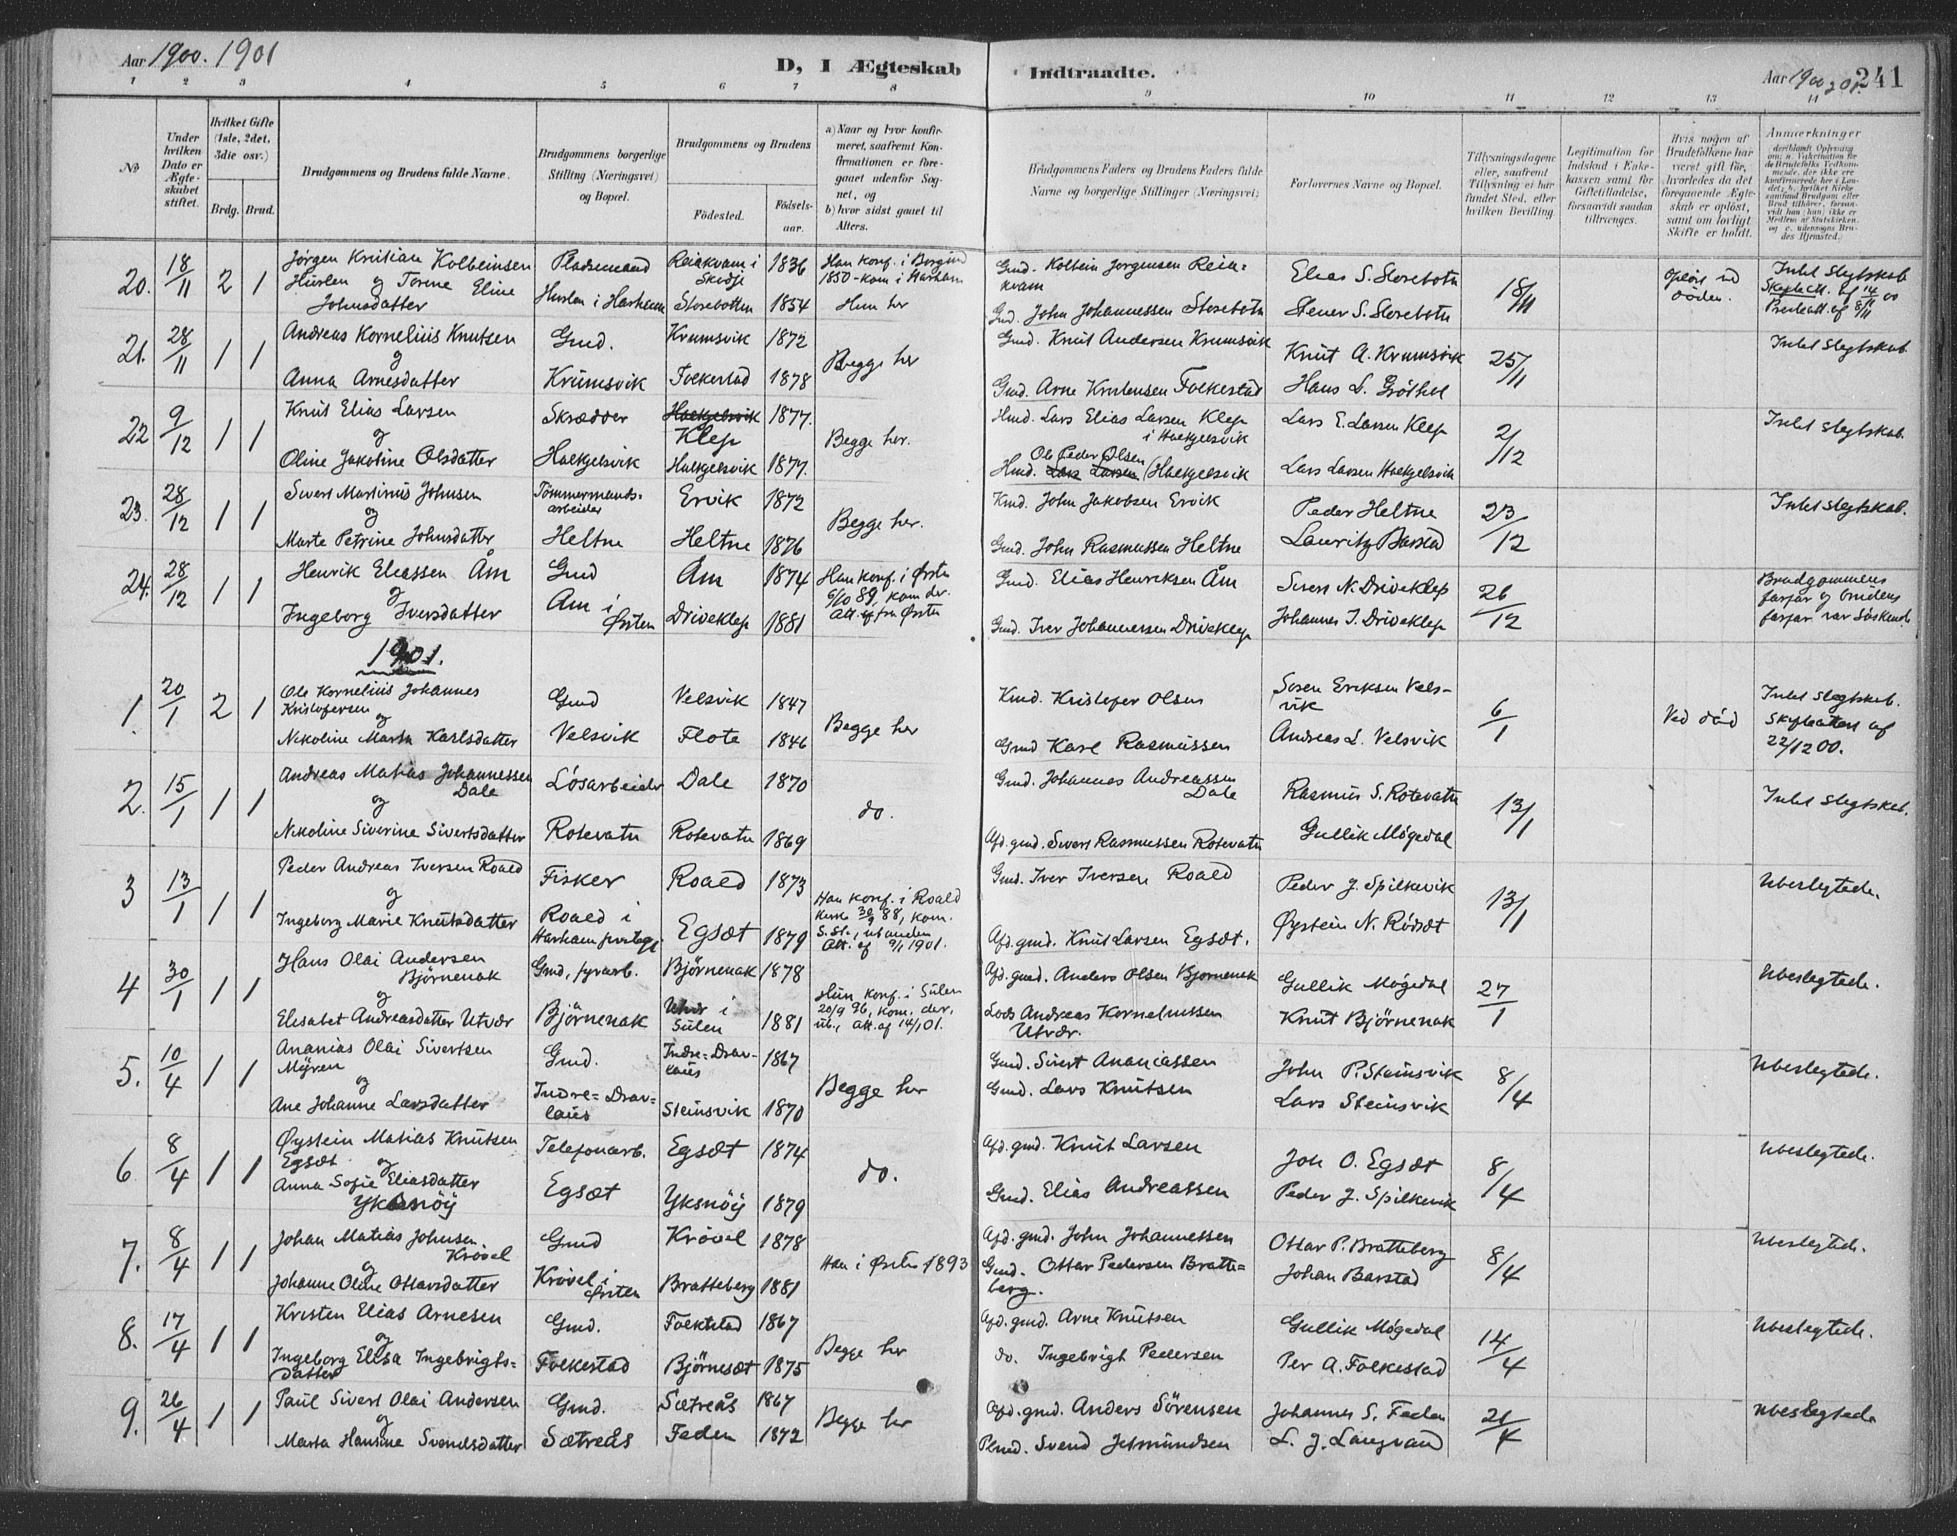 Aar 1900. 1901
D, I Ægteskab Indtraadte.
Aar 1900
241
1 2 3 4 5 6 7 8 9 10 11 12 13 14
No
Under hvilken Dato er Ægteskabet stiftet.
Hvilket Gifte (1ste, 2det, 3die osv.)
Brdg. Brud.
Brudgommens og Brudens fulde Navne.
Brudgommens borgerlige Stilling (Næringsvei) og Bopæl.
Brudgommens og Brudens
Födested. Födsels-aar.
a) Naar og hvor konfirmeret, saafremt Konfirmationen er foregaaet udenfor Sognet, og
b) hvor sidst gaaet til Alters.
Brudgommens Faders og Brudens Faders fulde Navne og borgerlige Stillinger (Næringsvei)
Forlovernes Navne og Bopæl.
Tillysningsdagene eller, saafremt Tillysning ei har fundet Sted, efter hvilken Bevilling
Legitimation for Indskud i Enkekassen samt for Giftetilladelse, forsaavidt saadan tiltrænges.
Hvis nogen af Brudefolkene har været gift för, hvorledes da det foregaaende Ægteskab er oplöst, samt om lovligt Skifte er holdt.
Anmærkninger
20. 18/11 2 1
Jørgen Kristian Kolbeinsen
Huslen og Torine Eline
Johnsdatter
Pladsemand
Huslen i Harham
Reiakvam i Skodje 1836
Storebotten 1854
Han konf. i Borgund
1850 - kom i Harham
Hun her
Gmd. Kolbein Jorgensen Reiakvam
Gmd. John Johannessen Storebotn
Elias S. Storebotn
Stener S. Storebotn
18/11
opløst ved døden.
Intet Slegtskab
Skifteatt. af 14/11 00
21. 28/11 1 1
Andreas Kornelius Knutsen
og
Anna Arnesdatter
Gmd.
Krumsvik
Krumsvik 1872
Folkestad 1878
Begge her
Gmd. Knut Andersen Krumsvik
Gmd. Arne Kristensen Folkestad
Knut A. Krumsvik
Hans L. Gröthol
25/11
Intet Slegtskab.
22 9/12 1 1
Knut Elias Larsen
og
Oline Jakobine Olsdatter
Skrædder
Halkjelsvik
Halkjelsvik Klep 1877.
Halkjelsvik 1877.
Begge her.
Hmd. Lars Elias Larsen Klep
i Halkjelsvik
Ole Peder Olsen
Hmd. Lars Larsen Halkjelsvik
Lars E. Larsen Klep
Lars Larsen Halkjelsvik
2/12
Intet slegtskab.
23. 28/12 1 1
Sivert Martinus Johnsen
og
Marte Petrine Johnsdatter
Tömmermands-
arbeider
Heltne
Ervik 1872
Heltne 1876
Begge her.
Kmd. John Jakobsen Ervik
Gmd. John Rasmussen Heltne
Peder Heltne
Lauritz Barstad
23/12
Intet slegtskab.
24. 28/12 1 1
Henrik Eliassen Åm
og
Ingeborg Iversdatter
Gmd
Åm i Ørsten
Åm 1874
Driveklep 1881
Han konf. i Ørsten
6/10 89, kom der.
Att. fra Ørsten
Gmd. Elias Henriksen Åm
Gmd. Iver Johannessen Driveklep
Sivert N. Driveklep
Johannes I. Driveklep
26/12
Brudgommens
farfar og brudens
farfar var Søskende
1901.
1. 20/1 2 1
Ole Kornelius Johannes
Kristofersen
og
Nikoline Marta Karlsdatter
Gmd
Velsvik
Velsvik 1847
Flote 1846
Begge her
Kmd. Kristofer Olsen
Gmd Karl Rasmussen
Soren Eriksen Velsvik
Andreas L. Velsvik
6/1
Ved död
Intet Slegtskab.
Skifteattest af
22/12 00.
2. 15/1 1 1
Andreas Matias Johannessen
Dale
og
Nikoline Siverine Sivertsdatter
Løsarbeider
Rotevatn
Dale 1870
Rotevatn 1869
do.
Gmd. Johannes Andreassen
Dale
Afd. gmd. Sivert Rasmussen Rotevatn
Rasmus S. Rotevatn
Gullik Møgedal
13/1
Intet Slegtskab.
3 13/1 1 1
Peder Andreas Iversen Roald
og
Ingeborg Marie Knutsdatter
Fisker
Roald i
Harham prestegj.
Roald 1873
Egsæt 1879
Han konf. i Roald
Kirke 30/9 88, kom.
S. St., utanden
Att. af 9/1 1901.
Gmd. Iver Iversen Roald
Afd. gmd. Knut Larsen Egsæt.
Peder J. Spilkevik
Øystein N. Rödset
13/1
Ubeslegtede.
4 30/1 1 1
Hans Olai Andersen
Björnenak
og
Elisabet Andreasdatter Utvær
Gmd, fyrarb.
Björnenak
Björnenak 1878
Utvær i Sulen 1881
Hun konf. i Sulen
20/9 96, kom. der,
ub., att. af 14/1 01.
Afd. gmd. Anders Olsen Bjornenak
Lods Andreas Kornelíussen
Utvær.
Gullik Møgedal
Knut Björnenak
27/1
Ubeslegtede.
5. 10/4 1 1
Ananias Olai Sivertsen
Myren
og
Ane Johanne Larsdatter
Gmd.
Indre-Dravlaus
Indre-Dravlaus 1867
Steinsvik 1870
Begge her
Gmd. Sivert Ananiassen
Gmd. Lars Knutsen
John P. Steinsvik
Lars Steinsvik
8/4
Ubeslegtede.
6 8/4 1 1
Øystein Matias Knutsen
Egsæt og
Anna Sofie Eliasdatter
Yksnöy
Telefonarb.
Egsæt
Egsæt 1874
Yksnöy 1879
do.
Afd. gmd. Knut Larsen
Gmd. Elias Andreassen
Joh O. Egsæt
Peder J. Spilkevik
8/4
Ubeslegtede.
7. 8/4 1 1
Johan Matias Johnsen
Krövel
og
Johanne Oline Ottarsdatter
Gmd
Krövel i Ørsten
Krövel 1878
Bratteberg 1881
Han i Ørsten 1893
Afd. gmd. John Johannessen
Gmd. Ottar Pedersen Bratteberg.
Ottar P. Bratteberg
Johan Barstad
8/4
Ubeslegtede.
8. 17/4 1 1
Kristen Elias Arnesen
og
Ingeborg Elisa Ingebrigts-
datter
Gmd.
Folkestad
Folkestad 1867
Björnesæt 1875
Begge her
Afd. gmd. Arne Knutsen
do. Ingebrigt Pedersen
Gullik Møgedal
Per A. Folkestad
14/4
Ubeslegtede.
9. 26/4 1 1
Paul Sivert Olai Andersen
og
Marta Hansine Svendsdatter
Gmd.
Sætreås
Sætreås 1867
Feden 1872
Begge her
Afd. gmd. Anders Sörensen
Plmd. Svend Jetmundsen
Johannes S. Feden
L. J. Langvad
21/4
Ubeslegtede